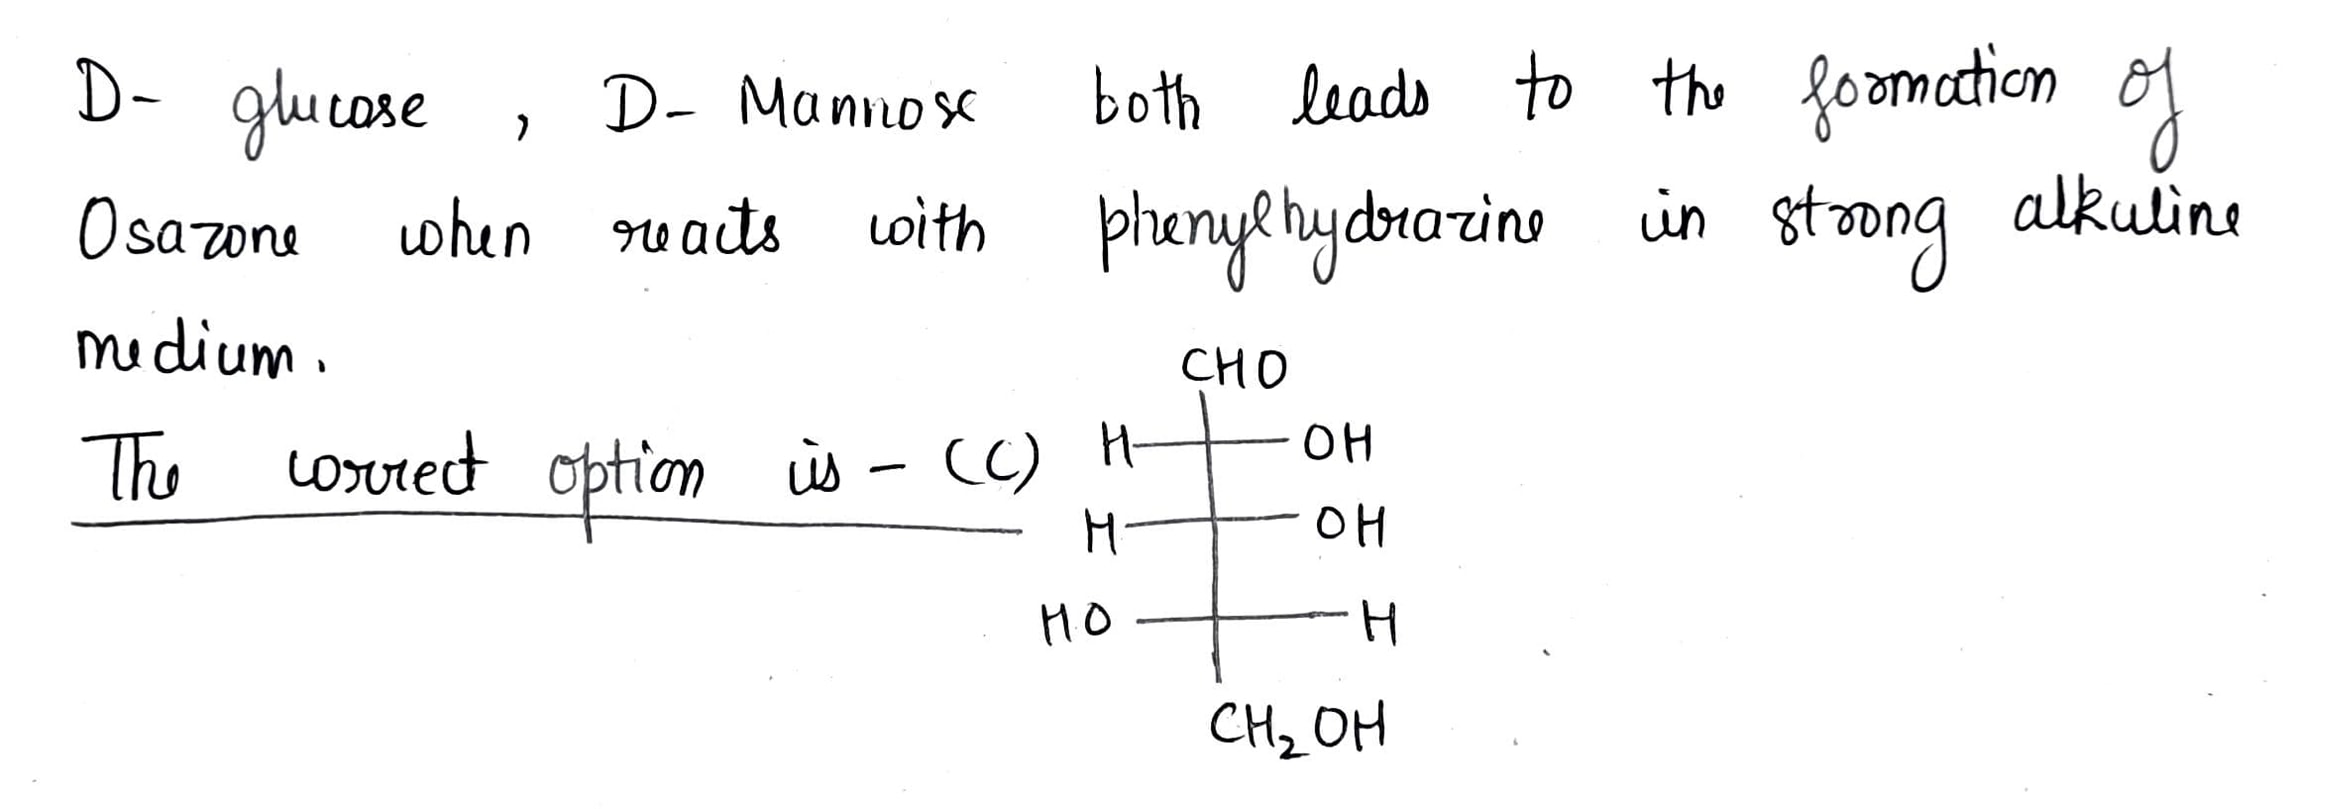 D- glucose , D- Mannose both leads to the formation of
Osazone when reacts with phenylhydrazine in strong alkaline
medium.
CHO
The correct option is - (C) H OH
H OH
HO H
CH₂OH